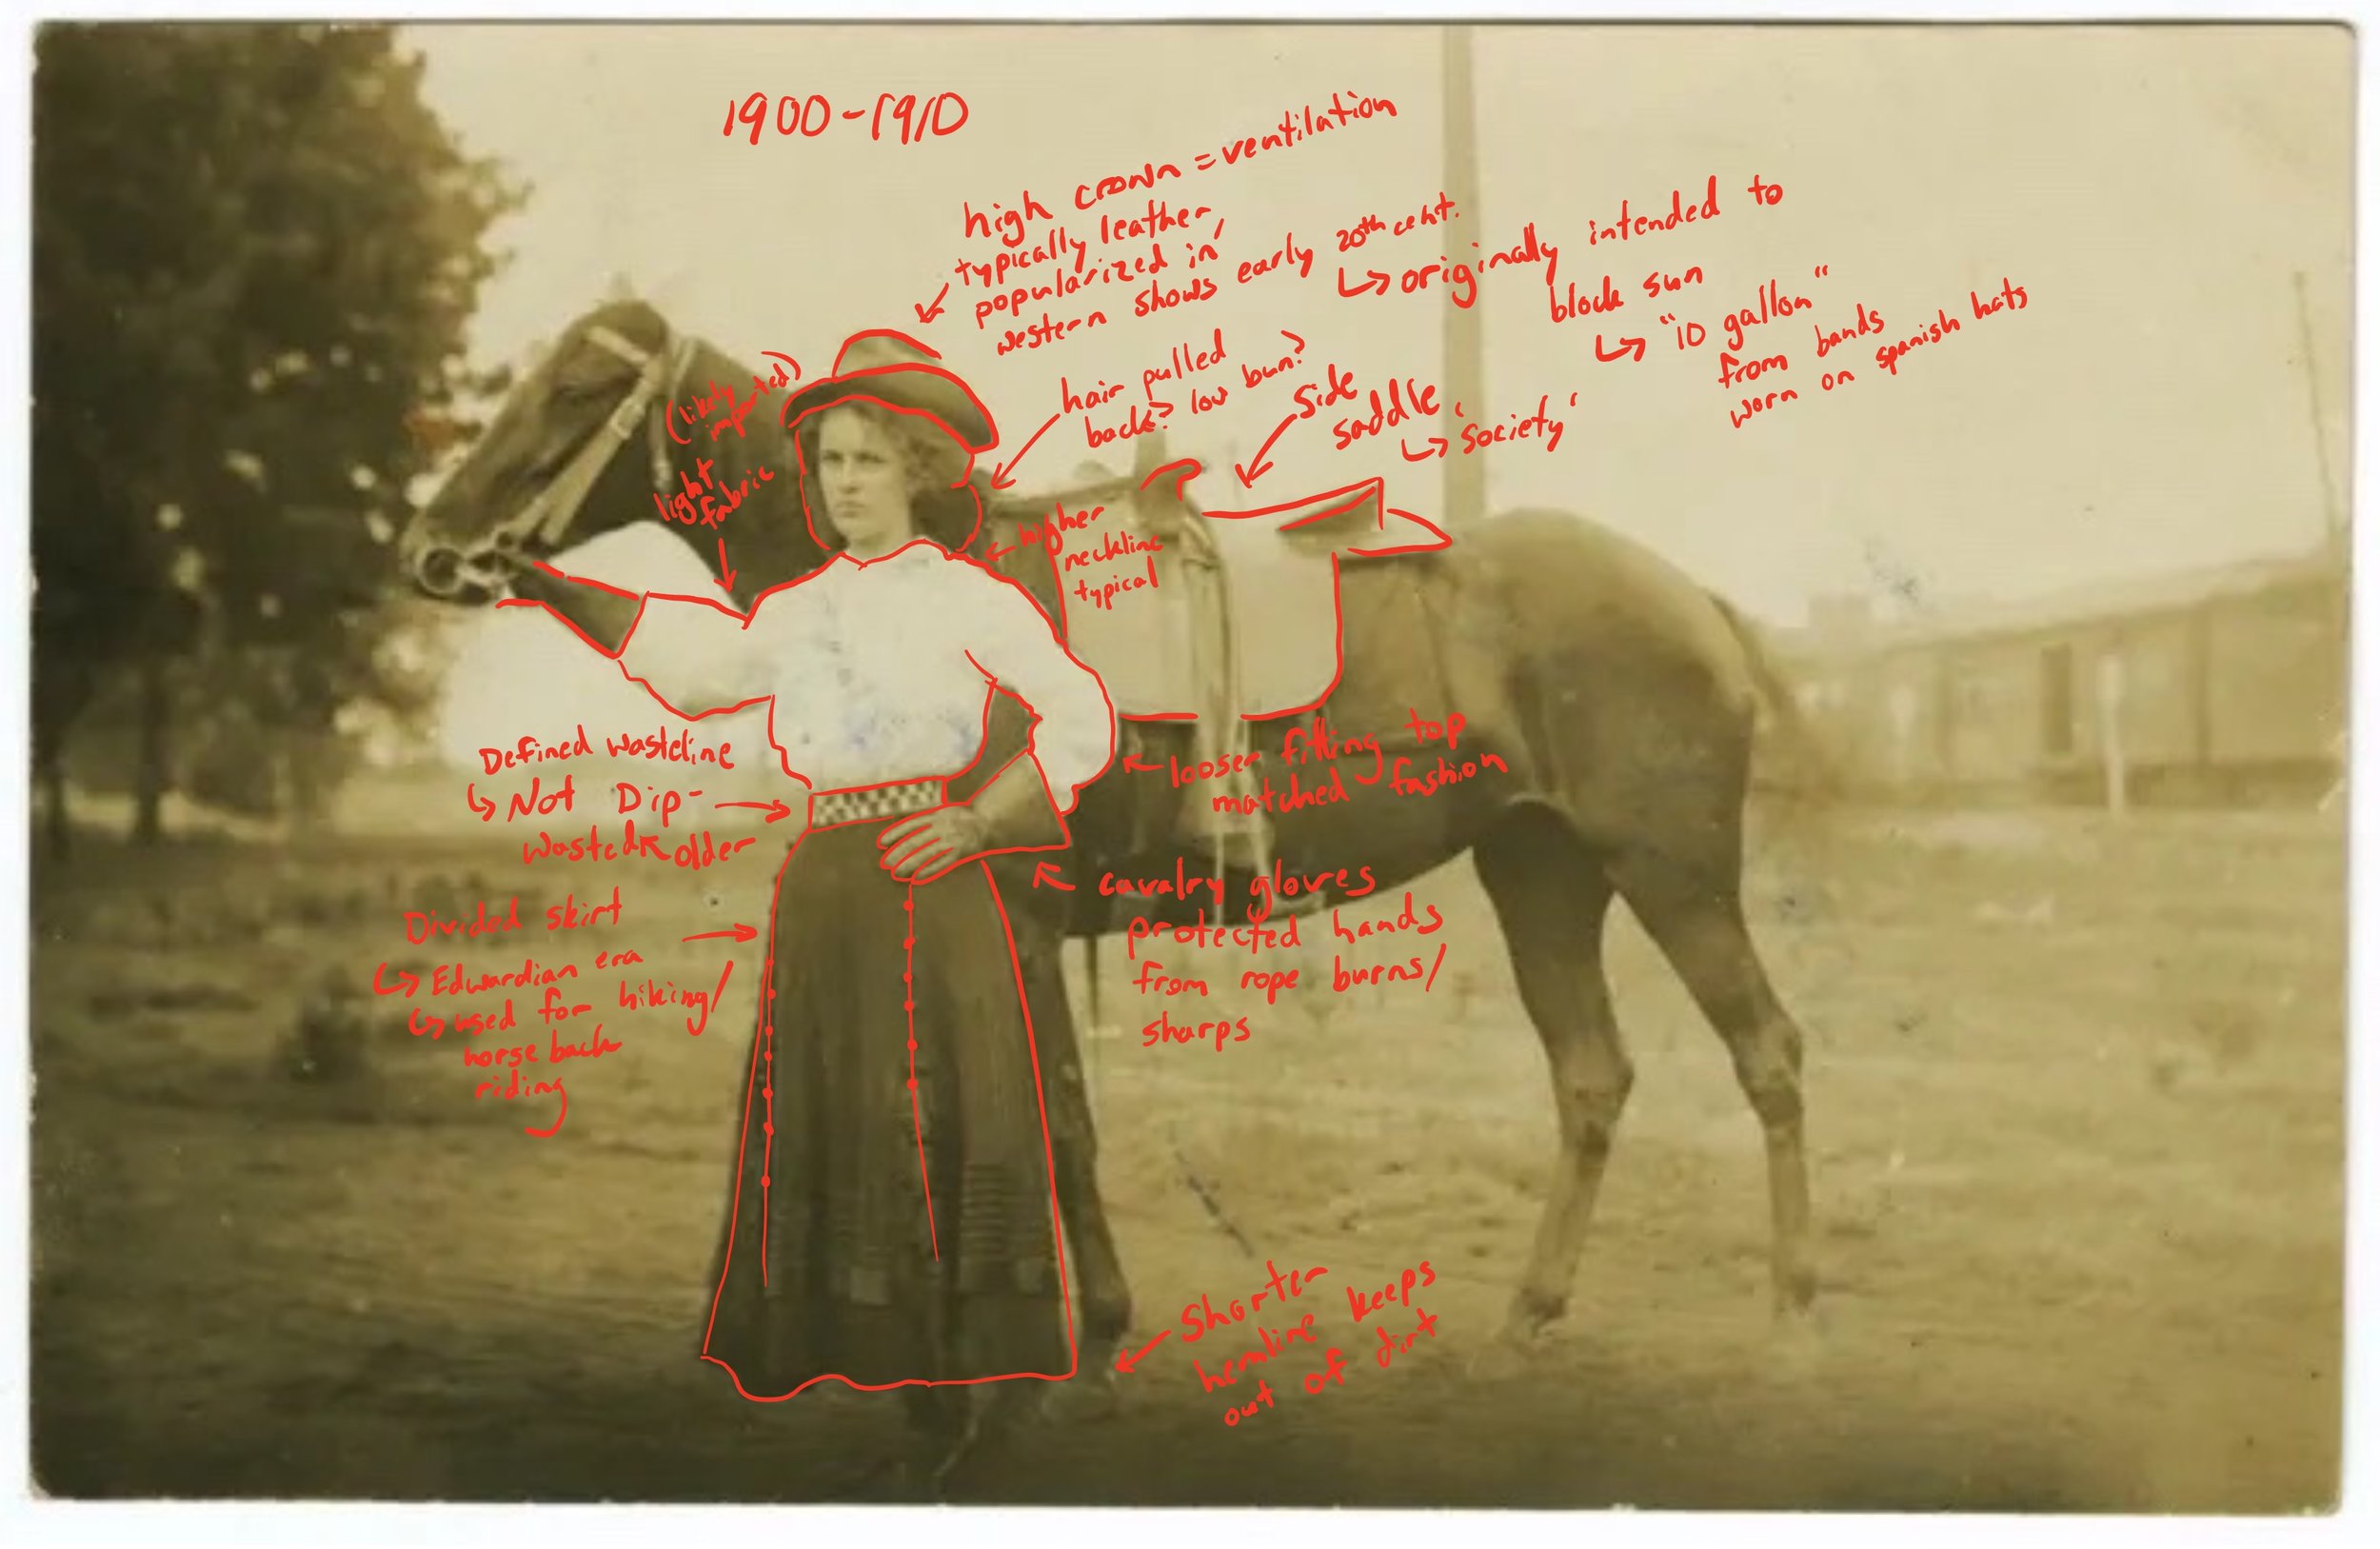 1900-1910
high crown = ventilation
typically leather,
popularized in
western shows early 20th cent.
↳ originally intended to
block sun
↳ "10 gallon"
from bands
worn on spanish hats
hair pulled
back? low bun?
side
saddle
↳ 'society'
(likely
imported)
light
fabric
← higher
neckline
typical
Defined wasteline
↳ Not Dip-
wasted ↖ older
← looser fitting top
matched fashion
cavalry gloves
protected hands
from rope burns/
sharps
Divided skirt
↳ Edwardian era
↳ used for hiking/
horse back
riding
shorter
hemline keeps
out of dirt